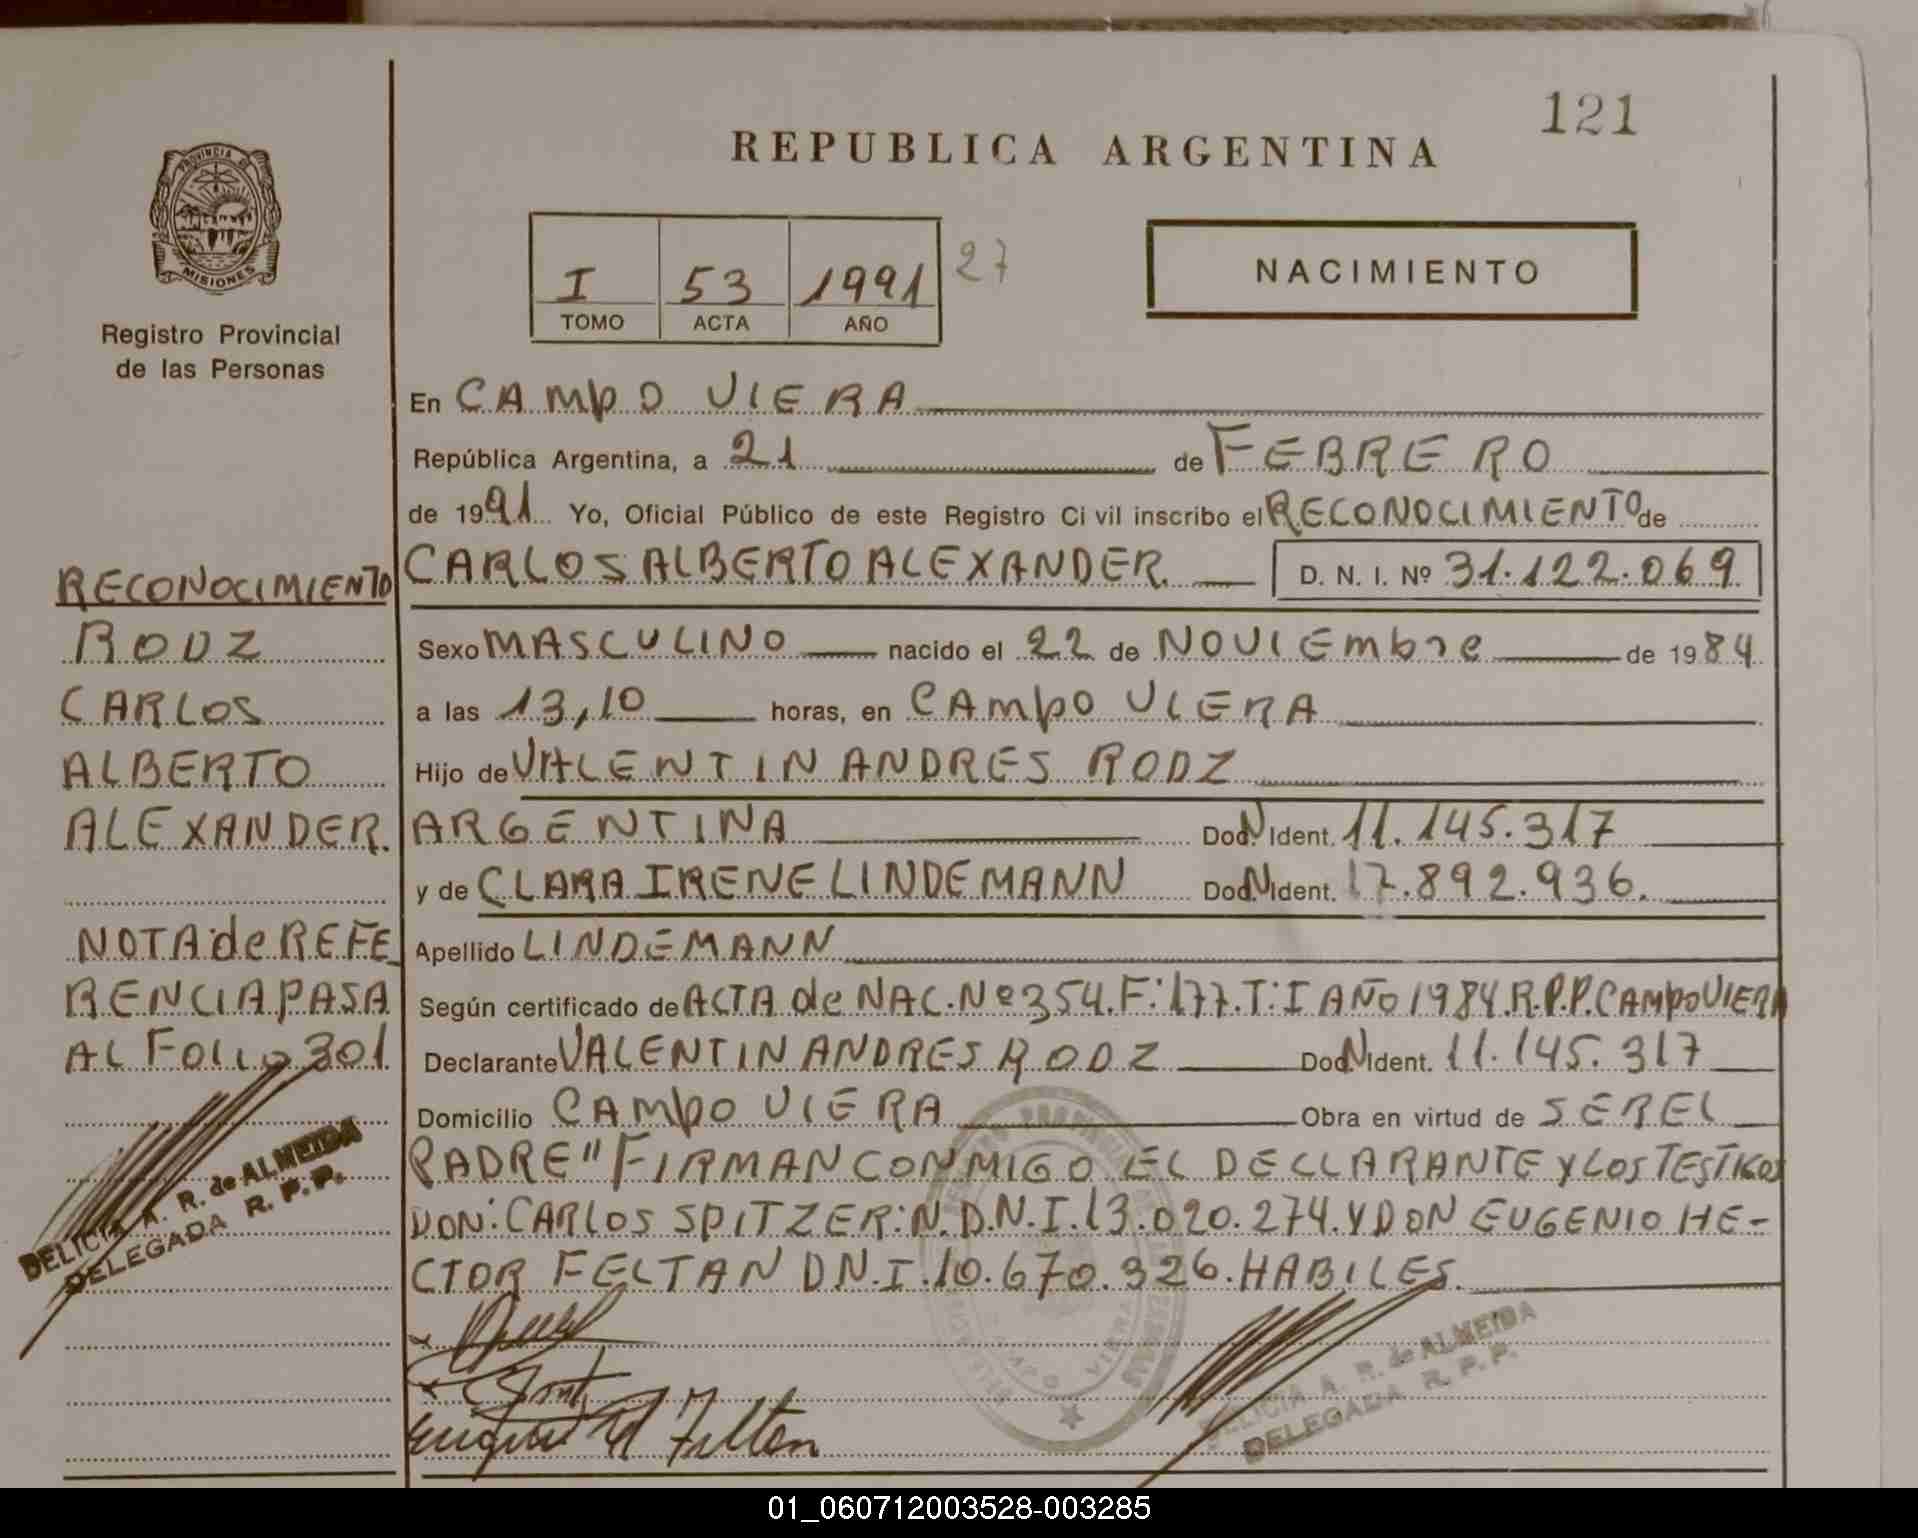 121
REPUBLICA ARGENTINA
PROVINCIA DE
MISIONES
Registro Provincial
de las Personas
I 53 1991 27
TOMO ACTA AÑO
NACIMIENTO
En CAMPO VIERA
República Argentina, a 21 de FEBRERO
de 1991 Yo, Oficial Público de este Registro Civil inscribo el RECONOCIMIENTO de
CARLOS ALBERTO ALEXANDER D. N. I. Nº 31.122.069
Sexo MASCULINO nacido el 22 de NOVIEMbre de 1984
a las 13,10 horas, en CAMPO VIERA
Hijo de VALENTIN ANDRES RODZ
ARGENTINA Doc.N Ident. 11.145.317
y de CLARA IRENE LINDEMANN Doc.N Ident. 17.892.936.
Apellido LINDEMANN
Según certificado de ACTA de NAC. Nº 354. F: 177. T: I AÑO 1984. R.P.P. CAMPO VIERA
Declarante VALENTIN ANDRES RODZ Doc.N Ident. 11.145.317
Domicilio CAMPO VIERA Obra en virtud de SER EL
PADRE" FIRMAN CONMIGO EL DECLARANTE Y LOS TESTIGOS
DON: CARLOS SPITZER: N. D.N.I. 13.020.274. Y DON EUGENIO HE-
CTOR FELTAN D.N.I. 10.670.326. HABILES.
RECONOCIMIENTO
RODZ
CARLOS
ALBERTO
ALEXANDER.
NOTA de REFE_
RENCIA PASA
AL FOLIO 301.
DELICIA A. R. de ALMEIDA
DELEGADA R. P. P.
DELICIA A. R. de ALMEIDA
DELEGADA R. P. P.
01_060712003528-003285